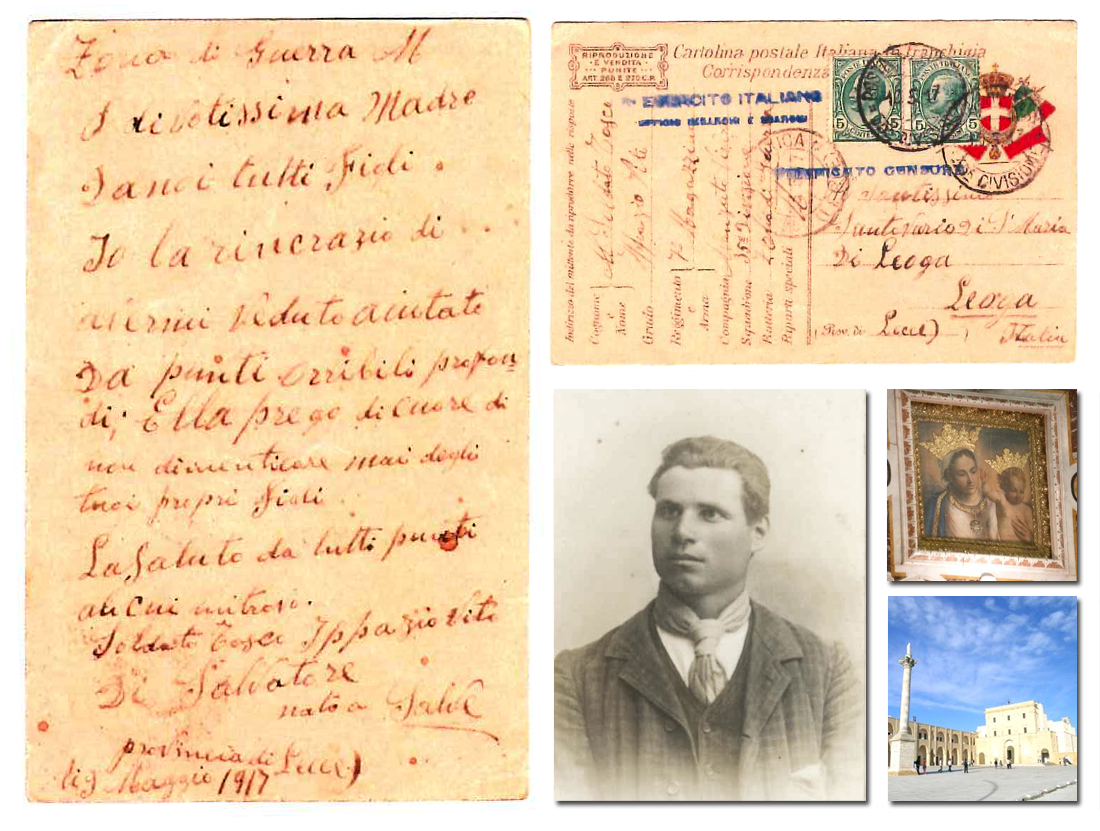 Zona di Guerra M
divotissima Madre
Da noi tutti Fidi.
Io la rincrazio di
avermi veduto aiutato
Da punti orribili profon
di; Ella prego di cuore di
non dimenticare mai degli
tuoi propri Fidi.
La Saluto da tutti punti
cui mitroso.
Soldato Cosci Ippazio Vito
Di Salvatore
nato a Salve
provincia di Lecce)
li 9 Maggio 1917
RIPRODUZIONE
E VENDITA
PUNITE
ART. 268 E 270 C.P.
Cartolina postale Italiana in franchigia
Corrispondenza
ESERCITO ITALIANO
POSTE ITALIANE
POSTE ITALIANE
5 CENT. 5
5 CENT. 5
DIVISIONE
CENSURA
Indirizzo del mittente da riprodurre nella risposta
Cognome e Nome
Soldato Cosci
Grado
Ippazio
Reggimento
7°
Arma
Magazzino
Compagnia
Squadrone
35a Divisione
Batteria
Zona di Guerra
Riparti speciali
Santissima
Santuario di S. Maria
Di Leoga
Leoga
(Prov. di Lecce)
Italia